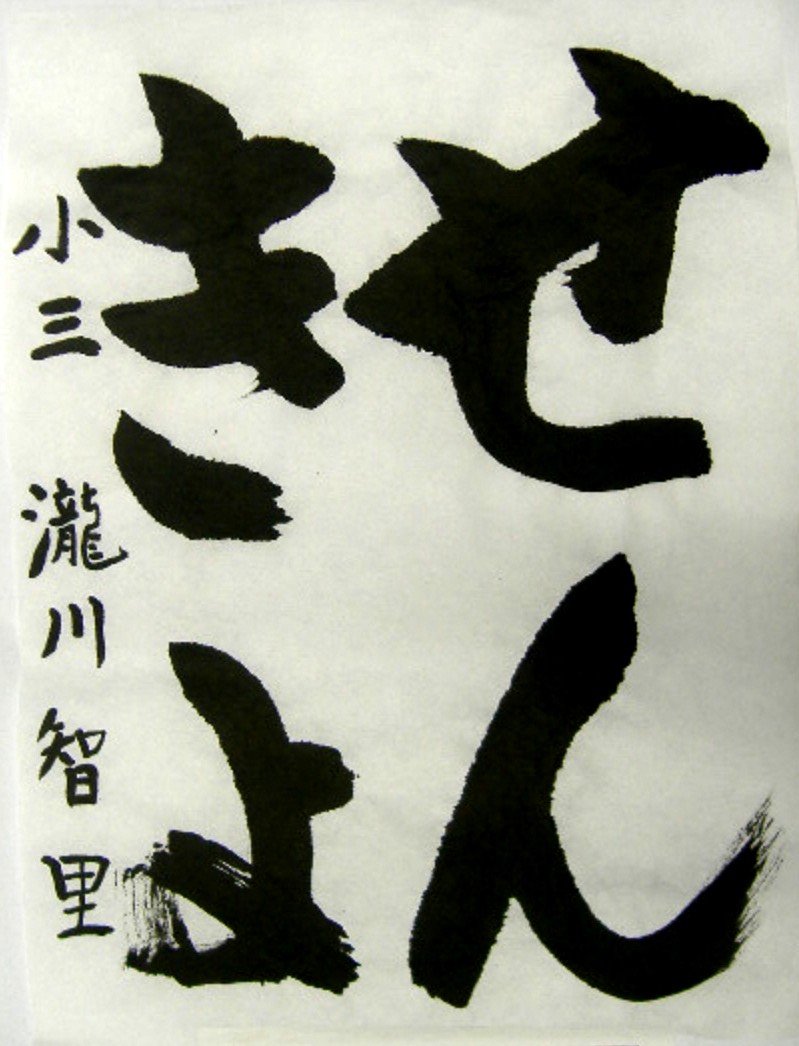 せん
きよ
小三 瀧川智里